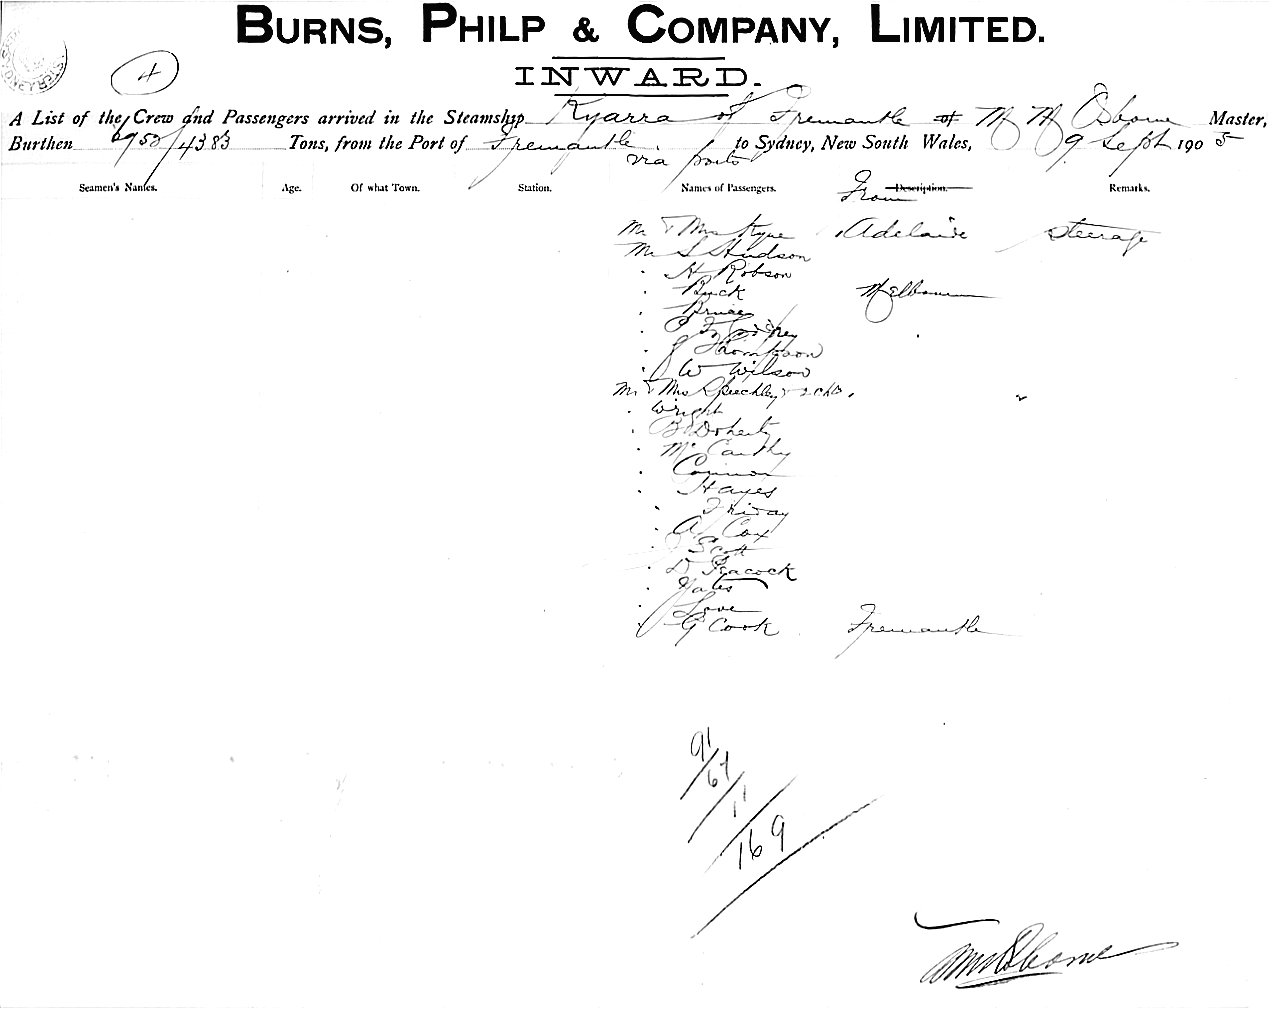 BURNS, PHILP & COMPANY, LIMITED.
4
INWARD.
A List of the Crew and Passengers arrived in the Steamship Kyarra of Fremantle of M M Osborne Master,
Burthen 6952/4383 Tons, from the Port of Fremantle via ports to Sydney, New South Wales, 9 Sept 1905
Seamen's Names. Age. Of what Town. Station. Names of Passengers. From Description. Remarks.
Mr & Mrs Kyne Adelaide steerage
Mr S Hudson
" H Robson
" Buck Melbourne
" Bruce
"
" J Thompson
" W Wilson
Mr & Mrs Speechley & 2 chdn "
" Wright
" B Doherty
" McCarthy
" Connor
" Hayes
" Friday
" A Cox
" Scott
" D Peacock
" Yates
" Love
" G Cook Fremantle
91
67
11
169